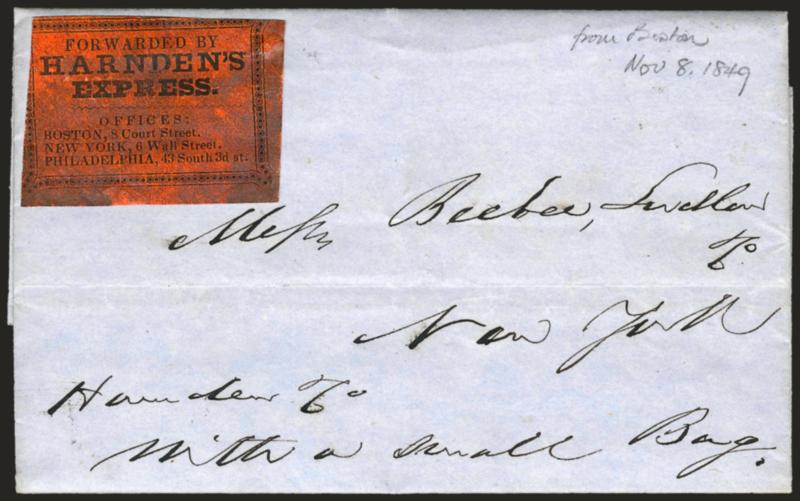 FORWARDED BY
HARNDEN'S
EXPRESS.
OFFICES:
BOSTON, 8 Court Street.
NEW YORK, 6 Wall Street.
PHILADELPHIA, 43 South 3d st.
from Boston
Nov 8, 1849
Mess Beebee, Ludlow
& Co
New York
Harnden & Co
With a small Bag.